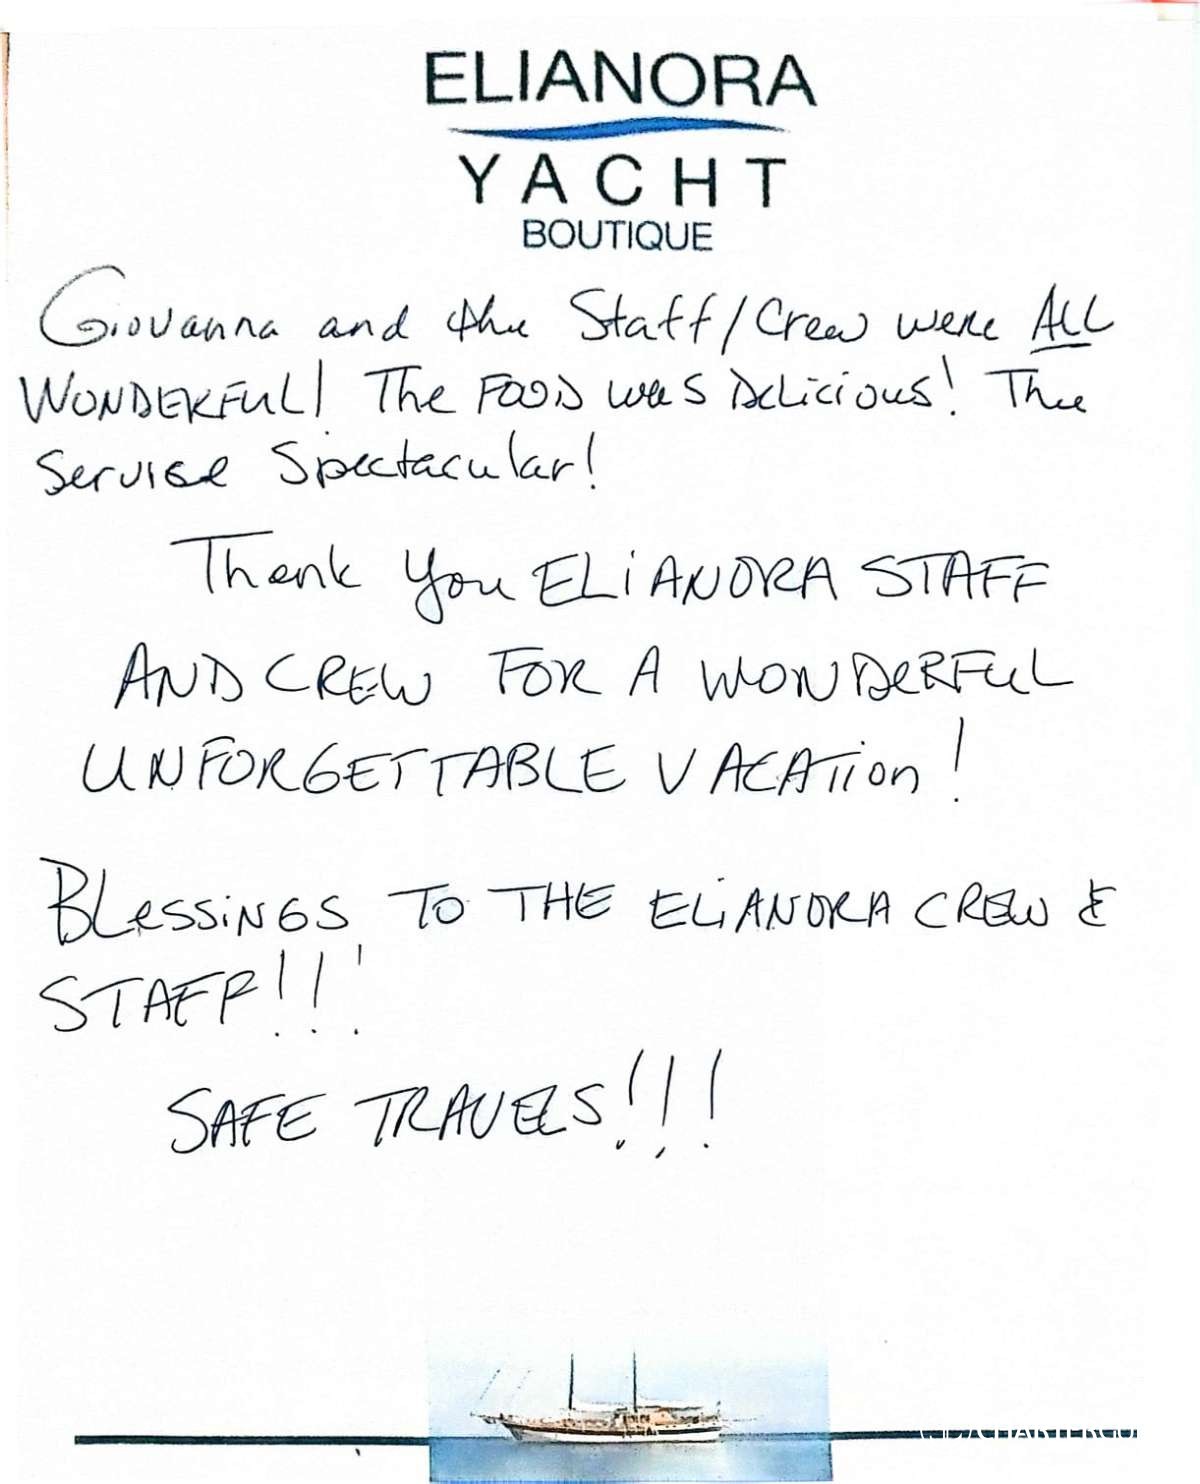 ELIANORA
YACHT
BOUTIQUE
Giovanna and the Staff/Crew were ALL
WONDERFUL! The FOOD was Delicious! The
Service Spectacular!
Thank You ELiANORA STAFF
AND CREW FOR A WONDERFUL
UNFORGETTABLE VACATion!
BLessiNGS TO THE ELiANORA CREW &
STAFF!!!
SAFE TRAVELS!!!